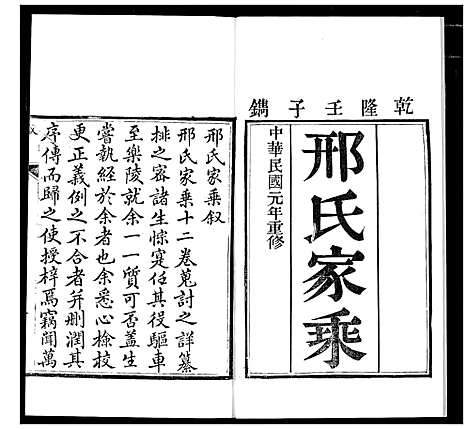 乾隆壬子鐫
邢氏家乘
中華民國元年重修
邢氏家乘叙
邢氏家乘十二卷蒐討之詳纂
排之審諸生悰寔任其役驅車
至樂陵就余一一質可否蓋生
嘗執經於余者也余悉心檢校
更正義例之不合者并刪潤其
序傳而歸之使授梓焉竊聞萬